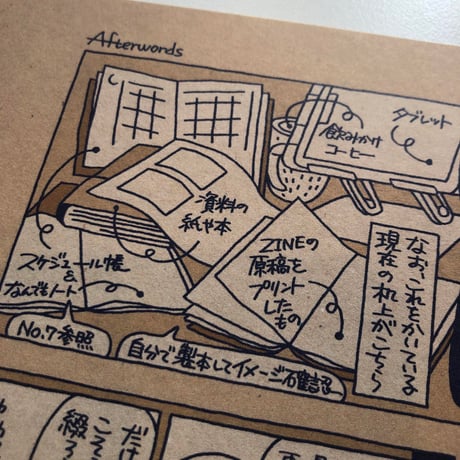 Afterwords
タブレット
飲みかけ
コーヒー
資料の
紙や本
ZINEの
原稿を
プリント
した
もの
なお、これをかいている
現在の机上がこちら
スケジュール帳
&
なんでもノート
No.7参照
自分で製本してイメージ確認
だけ
こそ
綴